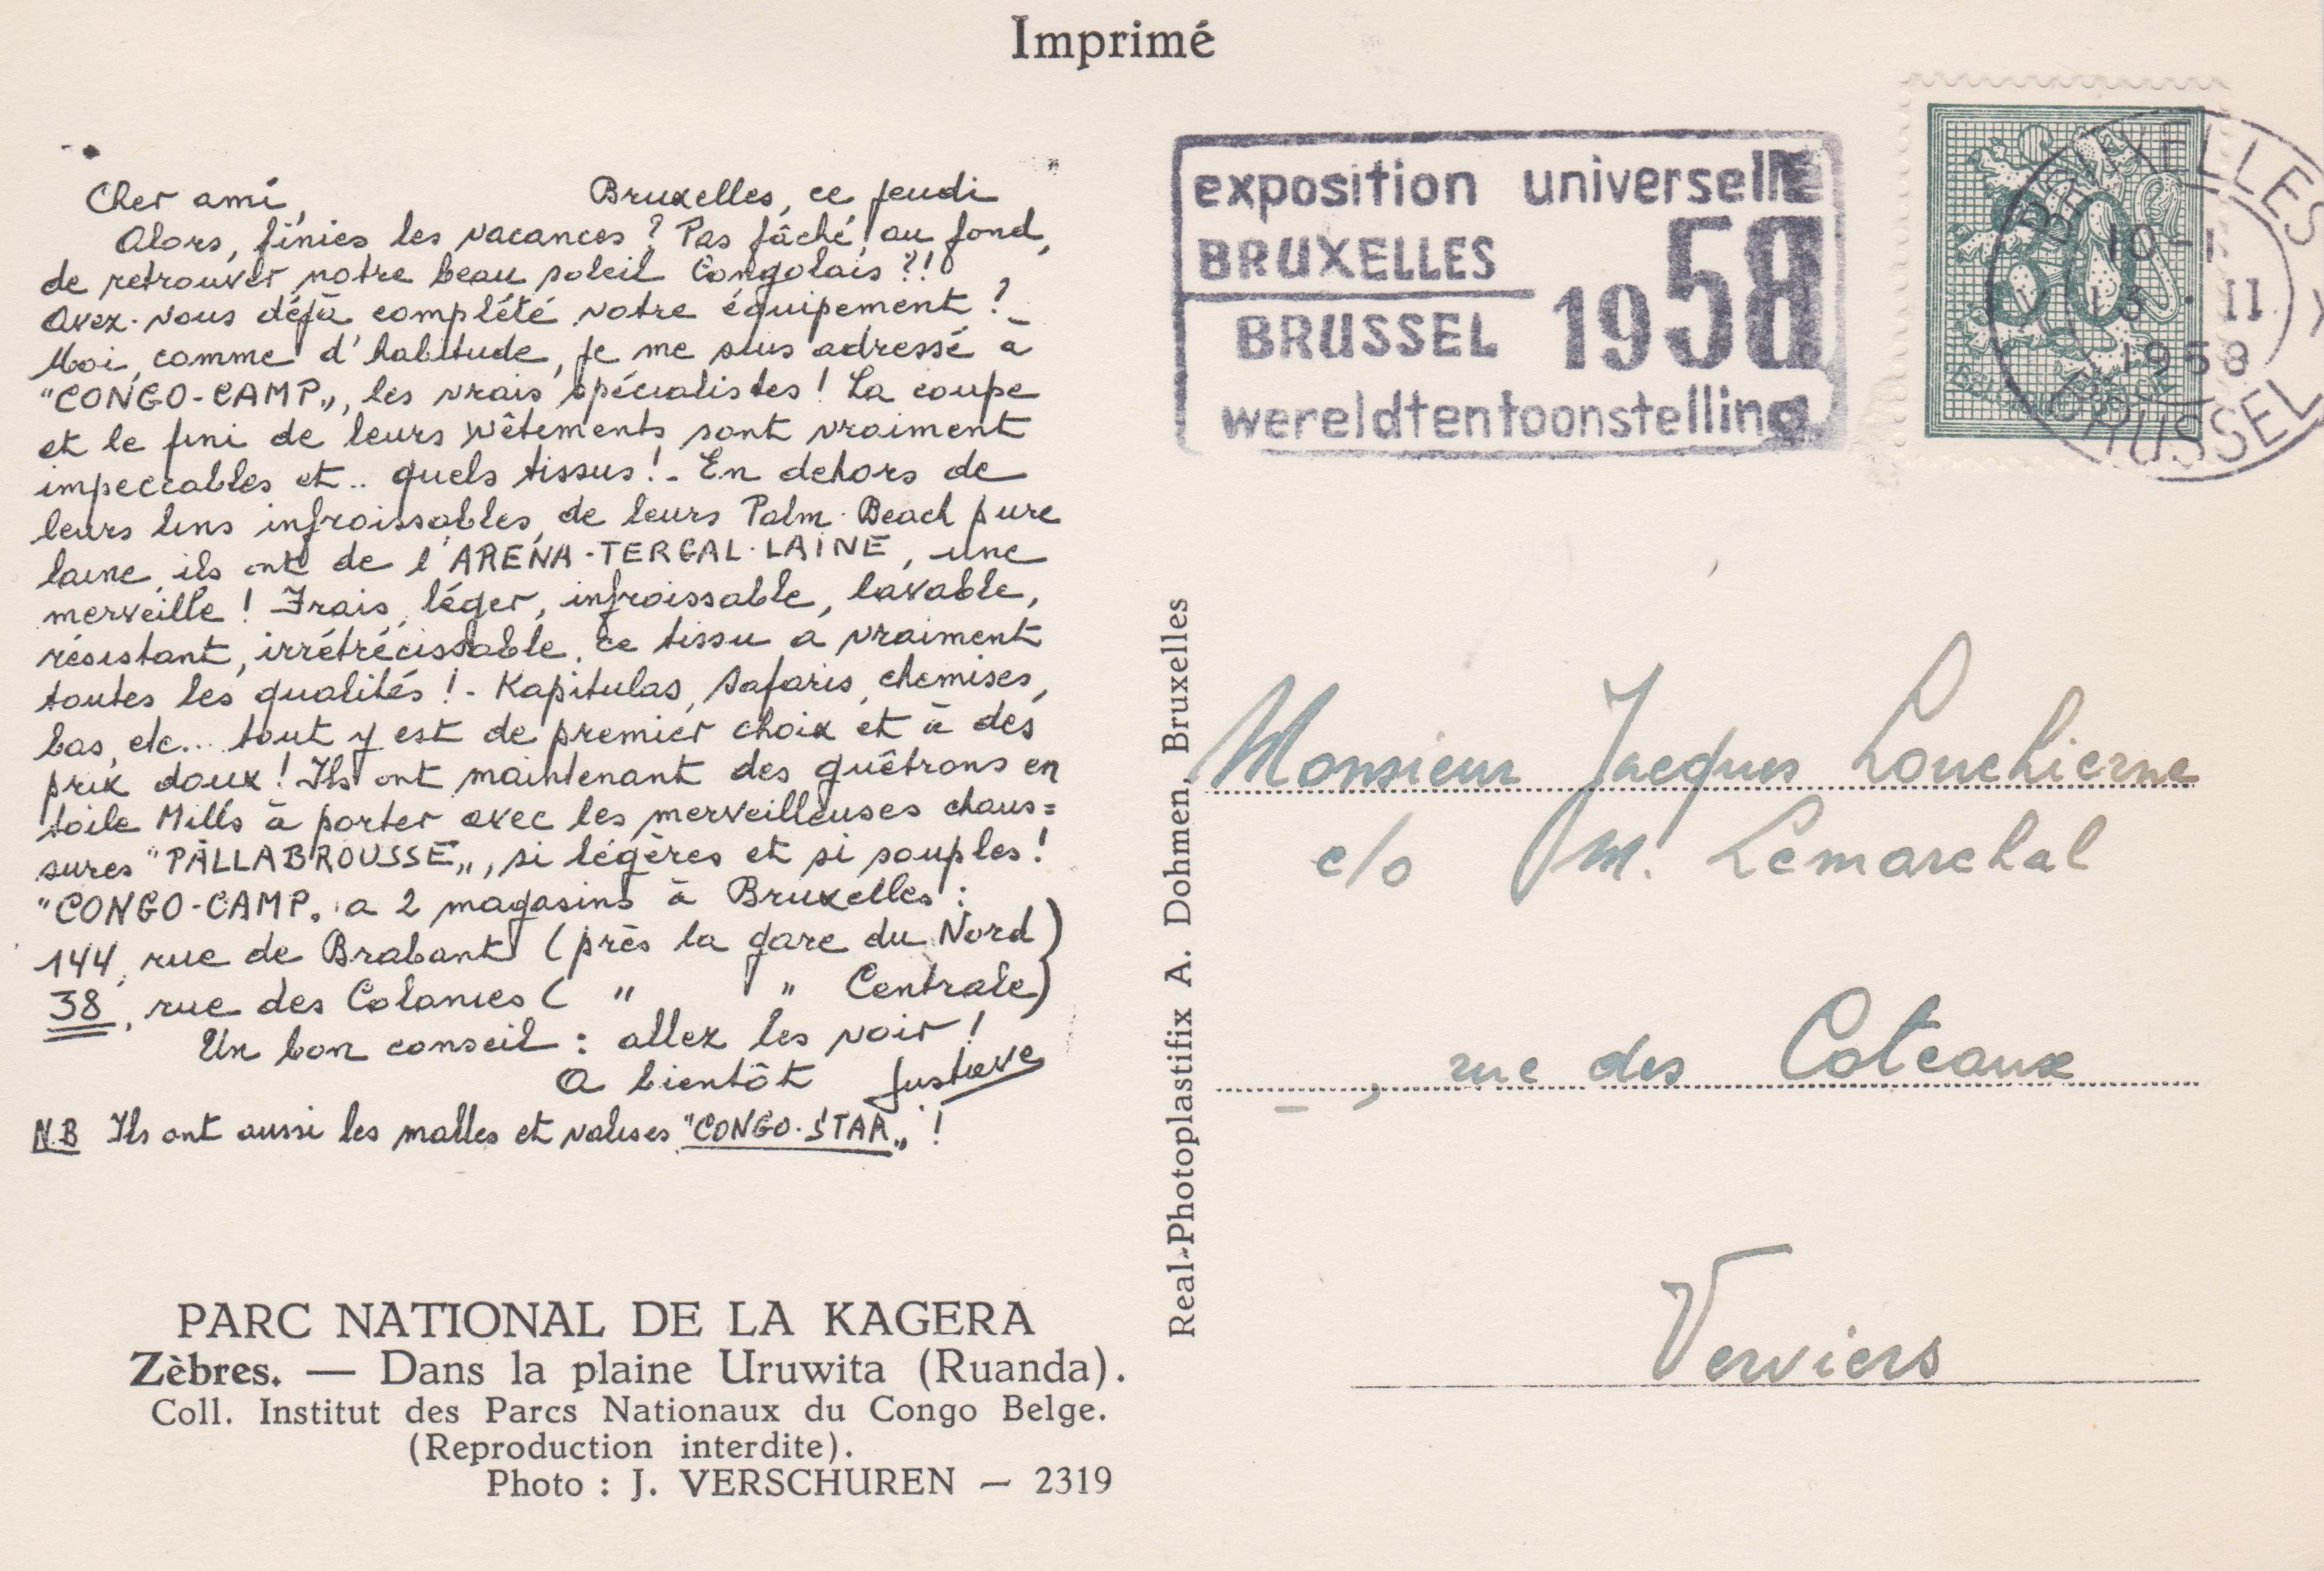 Imprimé
Cher ami, Bruxelles, ce jeudi
Alors, finies les vacances ? Pas fâché, au fond,
de retrouver notre beau soleil Congolais ?!
Avez-vous déjà complété votre équipement ?
Moi, comme d'habitude, je me suis adressé à
"CONGO-CAMP„, les vrais spécialistes ! La coupe
et le fini de leurs vêtements sont vraiment
impeccables et.. quels tissus ! - En dehors de
leurs lins infroissables, de leurs Palm-Beach pure
laine, ils ont de l'ARENA-TERGAL-LAINE, une
merveille ! Frais, léger, infroissable, lavable,
résistant, irrétrécissable, ce tissu a vraiment
toutes les qualités ! - Kapitulas, Safaris, chemises,
bas, etc... tout y est de premier choix et à des
prix doux ! Ils ont maintenant des guêtrons en
toile Mills à porter avec les merveilleuses chaus=
sures "PALLABROUSSE„, si légères et si souples !
"CONGO-CAMP„ a 2 magasins à Bruxelles :
144, rue de Brabant (près la gare du Nord)
38, rue des Colonies ( " " Centrale)
Un bon conseil : allez les voir !
A bientôt Gustave
NB Ils ont aussi les malles et valises "CONGO-STAR„ !
PARC NATIONAL DE LA KAGERA
Zèbres. — Dans la plaine Uruwita (Ruanda).
Coll. Institut des Parcs Nationaux du Congo Belge.
(Reproduction interdite).
Photo : J. VERSCHUREN — 2319
Real-Photoplastifix A. Dohmen, Bruxelles
exposition universelle
BRUXELLES
BRUSSEL
1958
wereldtentoonstelling
BRUXELLES
II
1958
BRUSSEL
30
Monsieur Jacques
c/o M. Lemarchal
, rue des Coteaux
Verviers